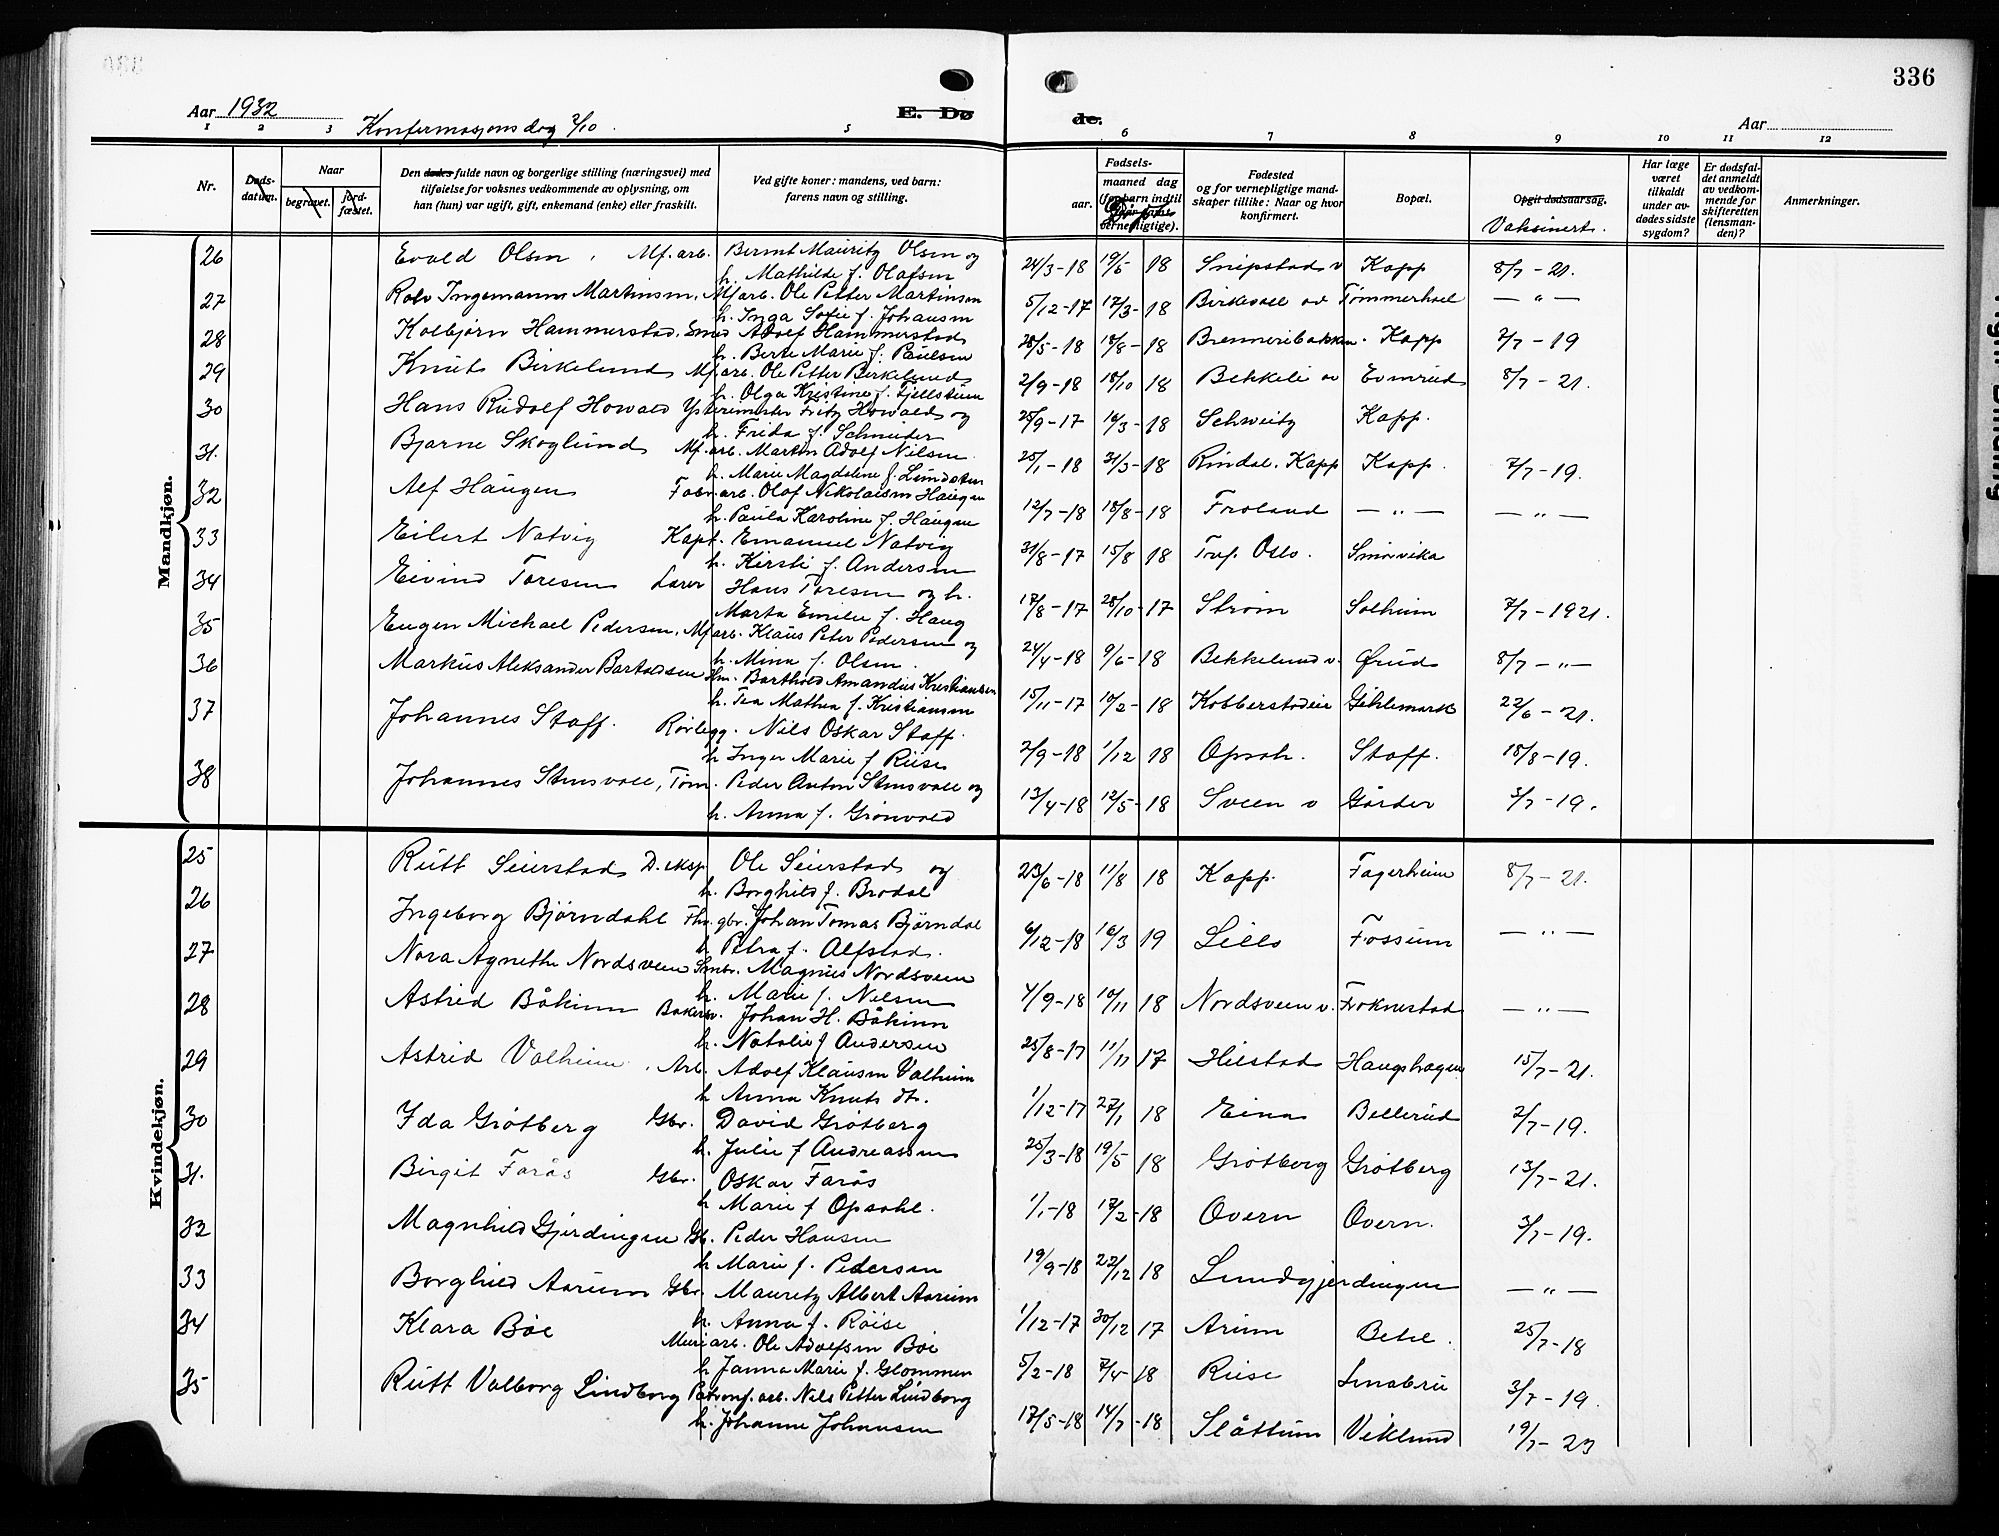 336
Aar 1932
Konfirmasjonsdag 2/10
E. Dø de.
Aar
1 2 3 5 6 7 8 9 10 11 12
Nr.
Døds-datum.
Naar
begravet.
jord-fæstet.
Den døde s fulde navn og borgerlige stilling (næringsvei) med
tilføielse for voksnes vedkommende av oplysning, om
han (hun) var ugift, gift, enkemand (enke) eller fraskilt.
Ved gifte koner: mandens, ved barn:
farens navn og stilling.
Fødsels-
aar.
maaned dag
Fødested
og for vernepligtige mand-
skaper tillike: Naar og hvor
konfirmert.
Bopæl.
Opgit dødsaarsag.
Vaksinert.
Har læge
været
tilkaldt
under av-
dødes sidste
sygdom?
Er dødsfal-
det anmeldt
av vedkom-
mende for
skifteretten
(lensman-
den)?
Anmerkninger.
Mandkjøn.
26 Evald Olsen, Mf. arb. Bernt Mauritz Olsen og 24/3-18 19/5 18 Snipstad v Kapp 8/7-21.
h. Mathilde f. Olafsen
27 Rolv Ingemann Martinsen, Mf arb. Ole Petter Martinsen 5/12-17 17/3-18 Birkevold av Tømmerhol — " —
h. Inga Sofie f. Johansen
28 Kolbjørn Hammerstad, Smed Adolf Hammerstad 28/5-18 18/8-18 Brenneribakken. Kapp 7/7-19
h. Berte Marie f. Paulsen
29 Knut Birkelund Mf. arb. Ole Petter Birkelund 2/9-18 18/10 18 Bekkeli av Evenrud 8/7-21.
h. Olga Kristine f. Fjellstuen
30 Hans Rudolf Howald Ysterimester Fritz Howald og 25/9-17 16/3-18 Schweitz Kapp.
h. Frida f. Schneider
31. Bjarne Skoglund Mf. arb. Martin Adolf Nilsen 25/1-18 31/3-18 Rindal. Kapp Kapp. 7/7-19.
h. Marie Magdalene f. Lundsten
32 Alf Haugen Fabr. arb. Olaf Nikolaisen Haugen 12/7-18 18/8-18 Froland — " — — " —
h. Paula Karoline f. Haugen
33 Eilert Natvig Kapt. Emanuel Natvig 31/8-17 15/8 18 Trefj. Oslo. Smørvika
h. Kirsti f. Andersen
34 Eivind Toresen Lærer Hans Toresen og h. 17/8-17 28/10-17 Strøm Solheim 7/7-1921.
Marta Emilie f. Haug
35 Eugen Michael Pedersen, Mf arb. Klaus Peter Pedersen og 24/4-18 9/6-18 Bekkelund v. Ørud 8/7-"-
h. Mina f. Olsen.
36 Markus Aleksander Bartoldsen Hm. Barthold Amandus Kristiansen 15/11-17 10/2-18 Kobberstadeie Gihlemark 22/6-21.
h. Tea Mathea f. Kristiansen
37 Johannes Staff. Rørlegg. Nils Oskar Staff. 2/9-18 1/12 18 Opsah. Staff. 18/8-19.
h Inger Marie f Riise
38 Johannes Stensvold, Tøm. Peder Anton Stensvold og 13/4-18 12/5-18 Sveen v Garder 3/7-19.
h. Anna f. Grønvold
Kvindekjøn.
25 Rutt Seierstad D. eksp. Ole Seierstad og 23/6-18 11/8 18 Kapp. Fagerheim 8/7-21.
h. Borghild f. Brodal
26 Ingeborg Bjørndahl Fhv. gbr. Johan Tomas Bjørndal 6/12-18 16/3 19 Lills Fossum — " —
h Petra f. Alfstad.
27 Nora Agnethe Nordsveen Smbr. Magnus Nordsveen 4/9-18 10/11 18 Nordsveen v. Froknestad — " —
h. Marie f. Nilsen
28 Astrid Båkinn Bakerm. Johan H. Båkinn 25/8-17 11/11 17 Hilstad Haugshagen 15/7-21.
h. Natalie f Andersen
29 Astrid Valheim, Arb. Adolf Klausen Valheim 1/12-17 27/1 18 Eina Bellerud 2/7-19.
h Anna Knuts dt.
30 Ida Grøtberg Gbr. David Grøtberg 25/3-18 19/5 18 Grøtberg Grøtberg 13/7-21.
h. Julie f Andreassen
31. Birgit Farås Gbr. Oskar Farås 1/1-18 17/2-18 Overn Overn. 3/7-19.
h Marie f Opsahl.
32 Magnhild Gjerdingen Gb. Peder Hansen 19/9-18 22/12 18 Lundgjerdingen — " —
h Marie f. Pedersen
33 Borghild Aarum Gbr Mauritz Albert Aarum 1/12-17 30/12 17 Arum Betel. 25/7-18
h. Anna f. Røise
34 Klara Bøe Meieriarb. Ole Adolfsen Bøe 5/2-18 7/4-18 Riise Lenabru 3/7-19.
h Janna Marie f. Glommen
35 Rutt Valborg Lindborg Patronf. arb. Nils Petter Lindborg 17/5-18 14/7-18 Slåttum Viklund 19/7-23
h. Johanne Johansen